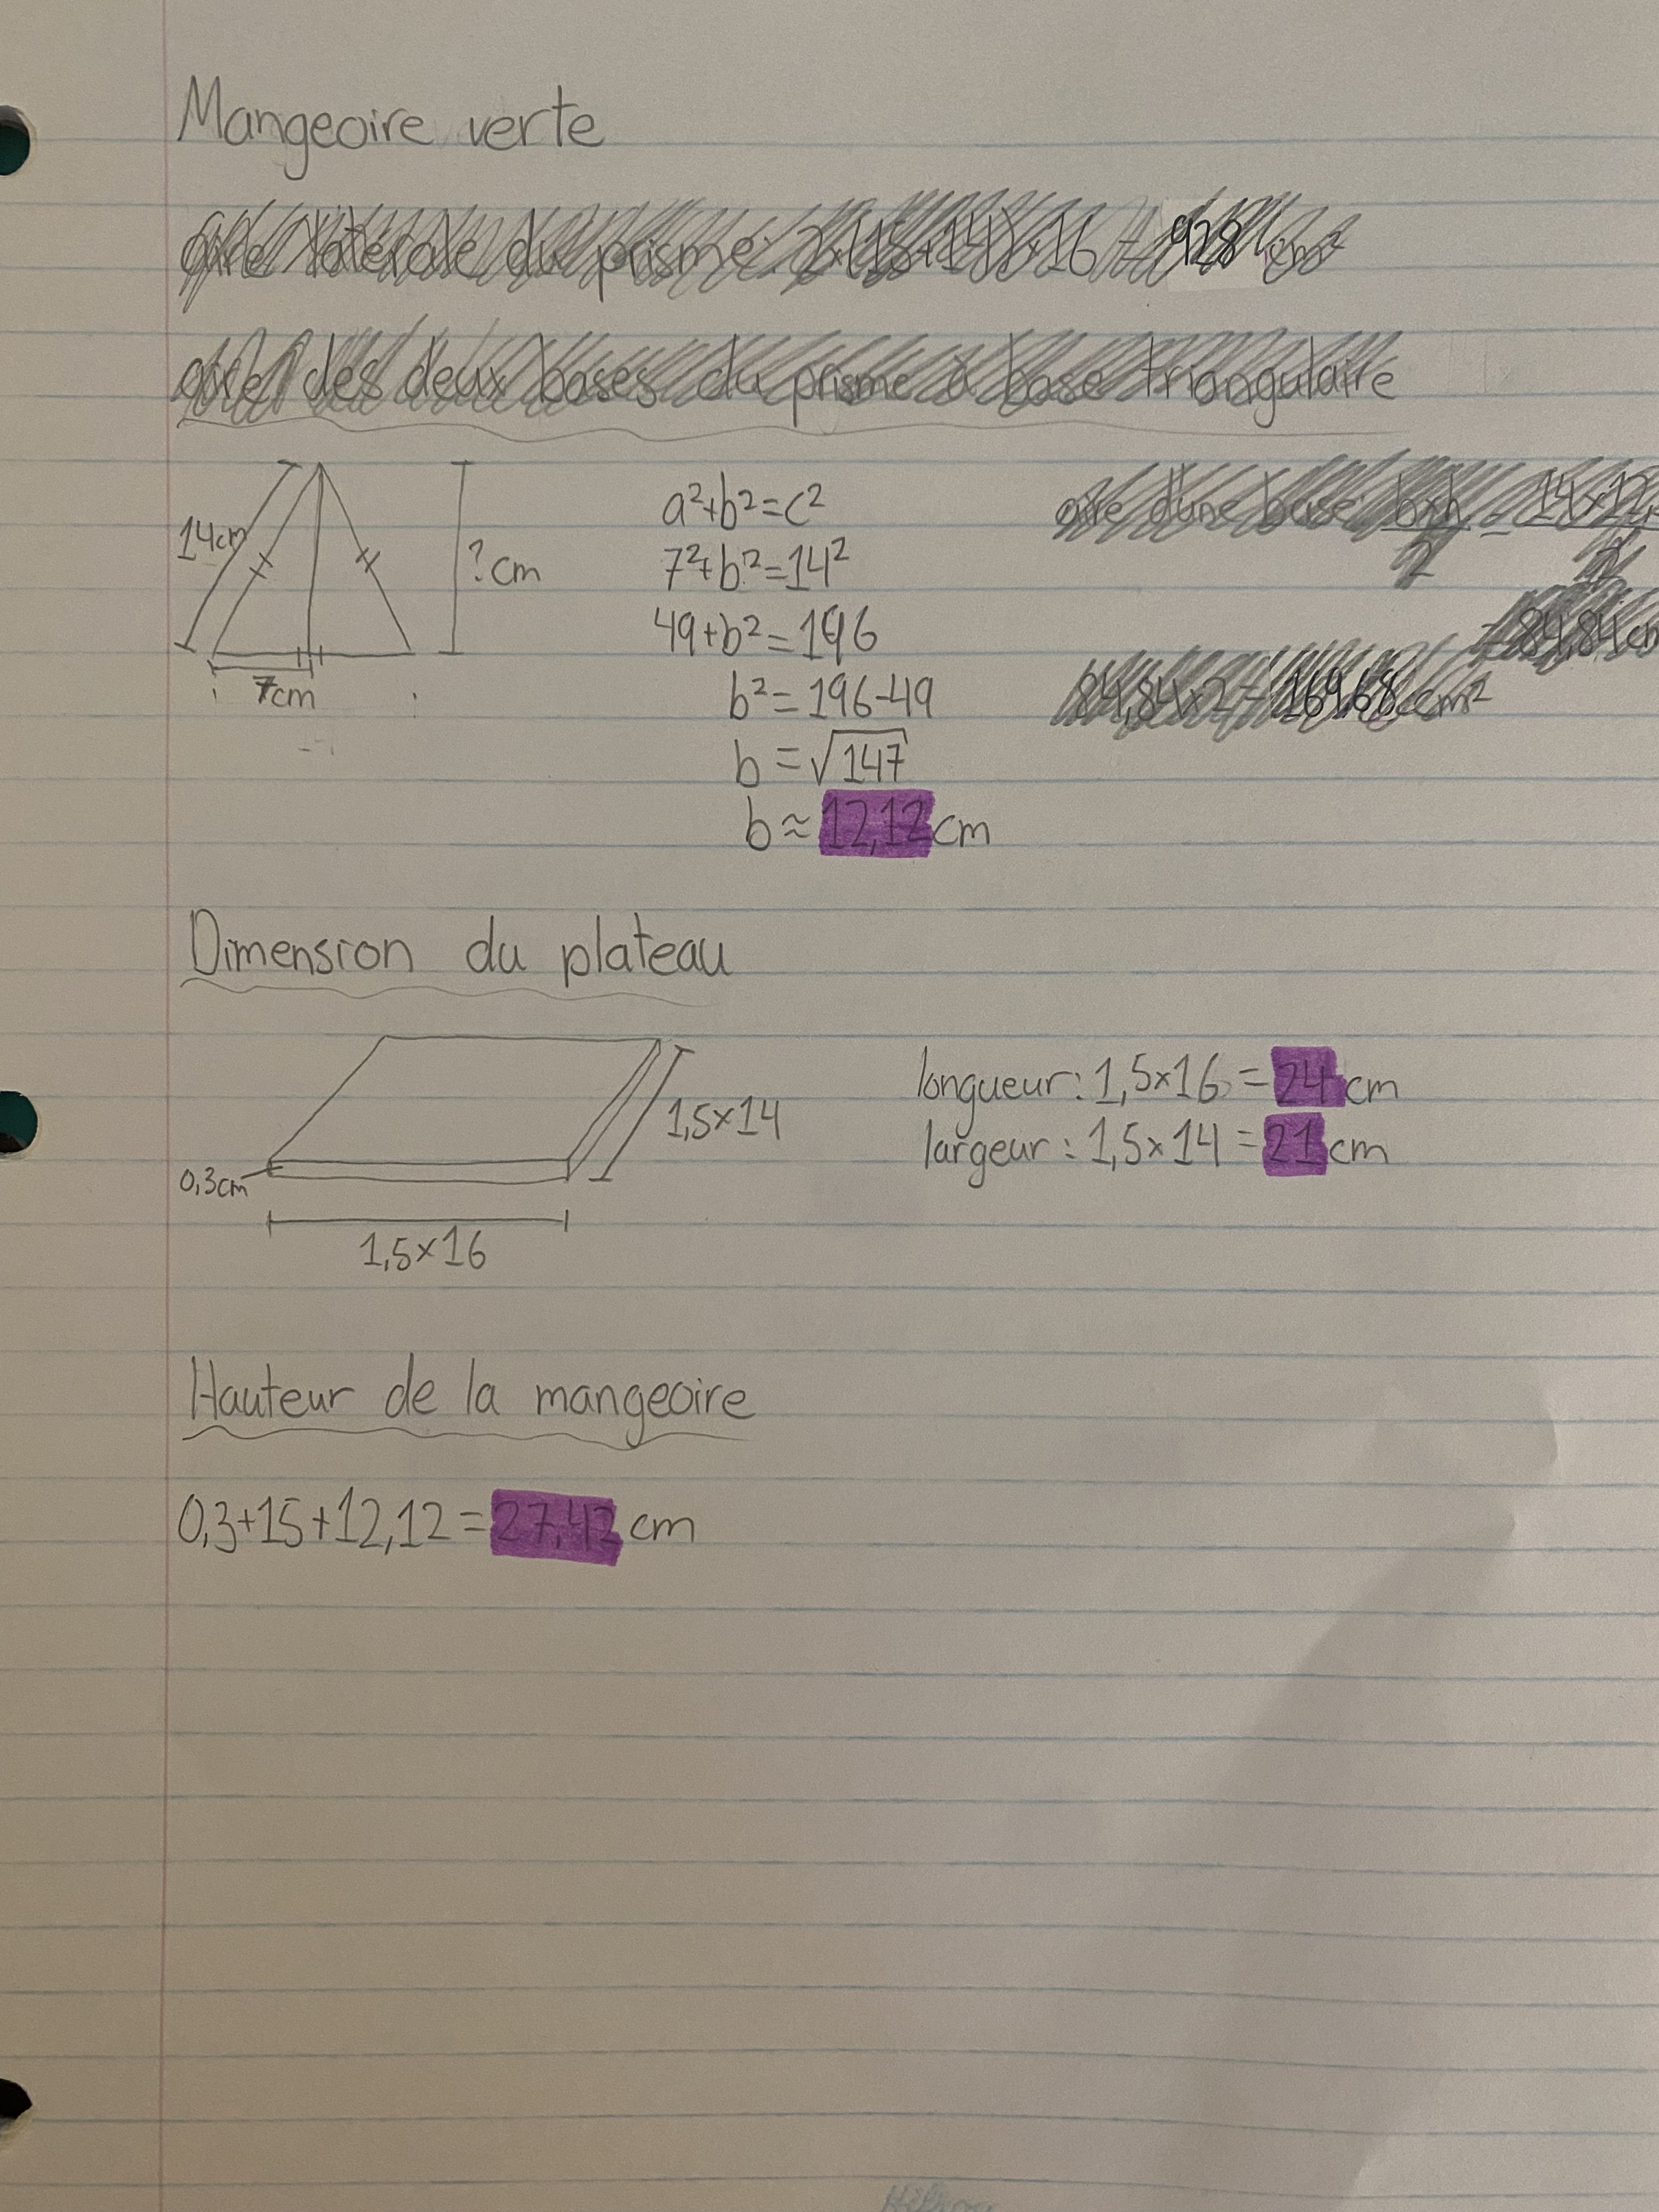 Mangeoire verte
aire latérale du prisme: 2×(15+14)×16 = 928 cm²
aire des deux bases du prisme à base triangulaire
14cm
?cm
7cm
a²+b²=c²
7²+b²=14²
49+b²=196
b²=196-49
b=√147
b≈12,12cm
aire d'une base: b×h/2 = 14×12,
2
=84,84cm
84,84×2=169,68 cm²
Dimension du plateau
0,3cm
1,5×14
1,5×16
longueur: 1,5×16=24cm
largeur: 1,5×14=21cm
Hauteur de la mangeoire
0,3+15+12,12=27,42cm